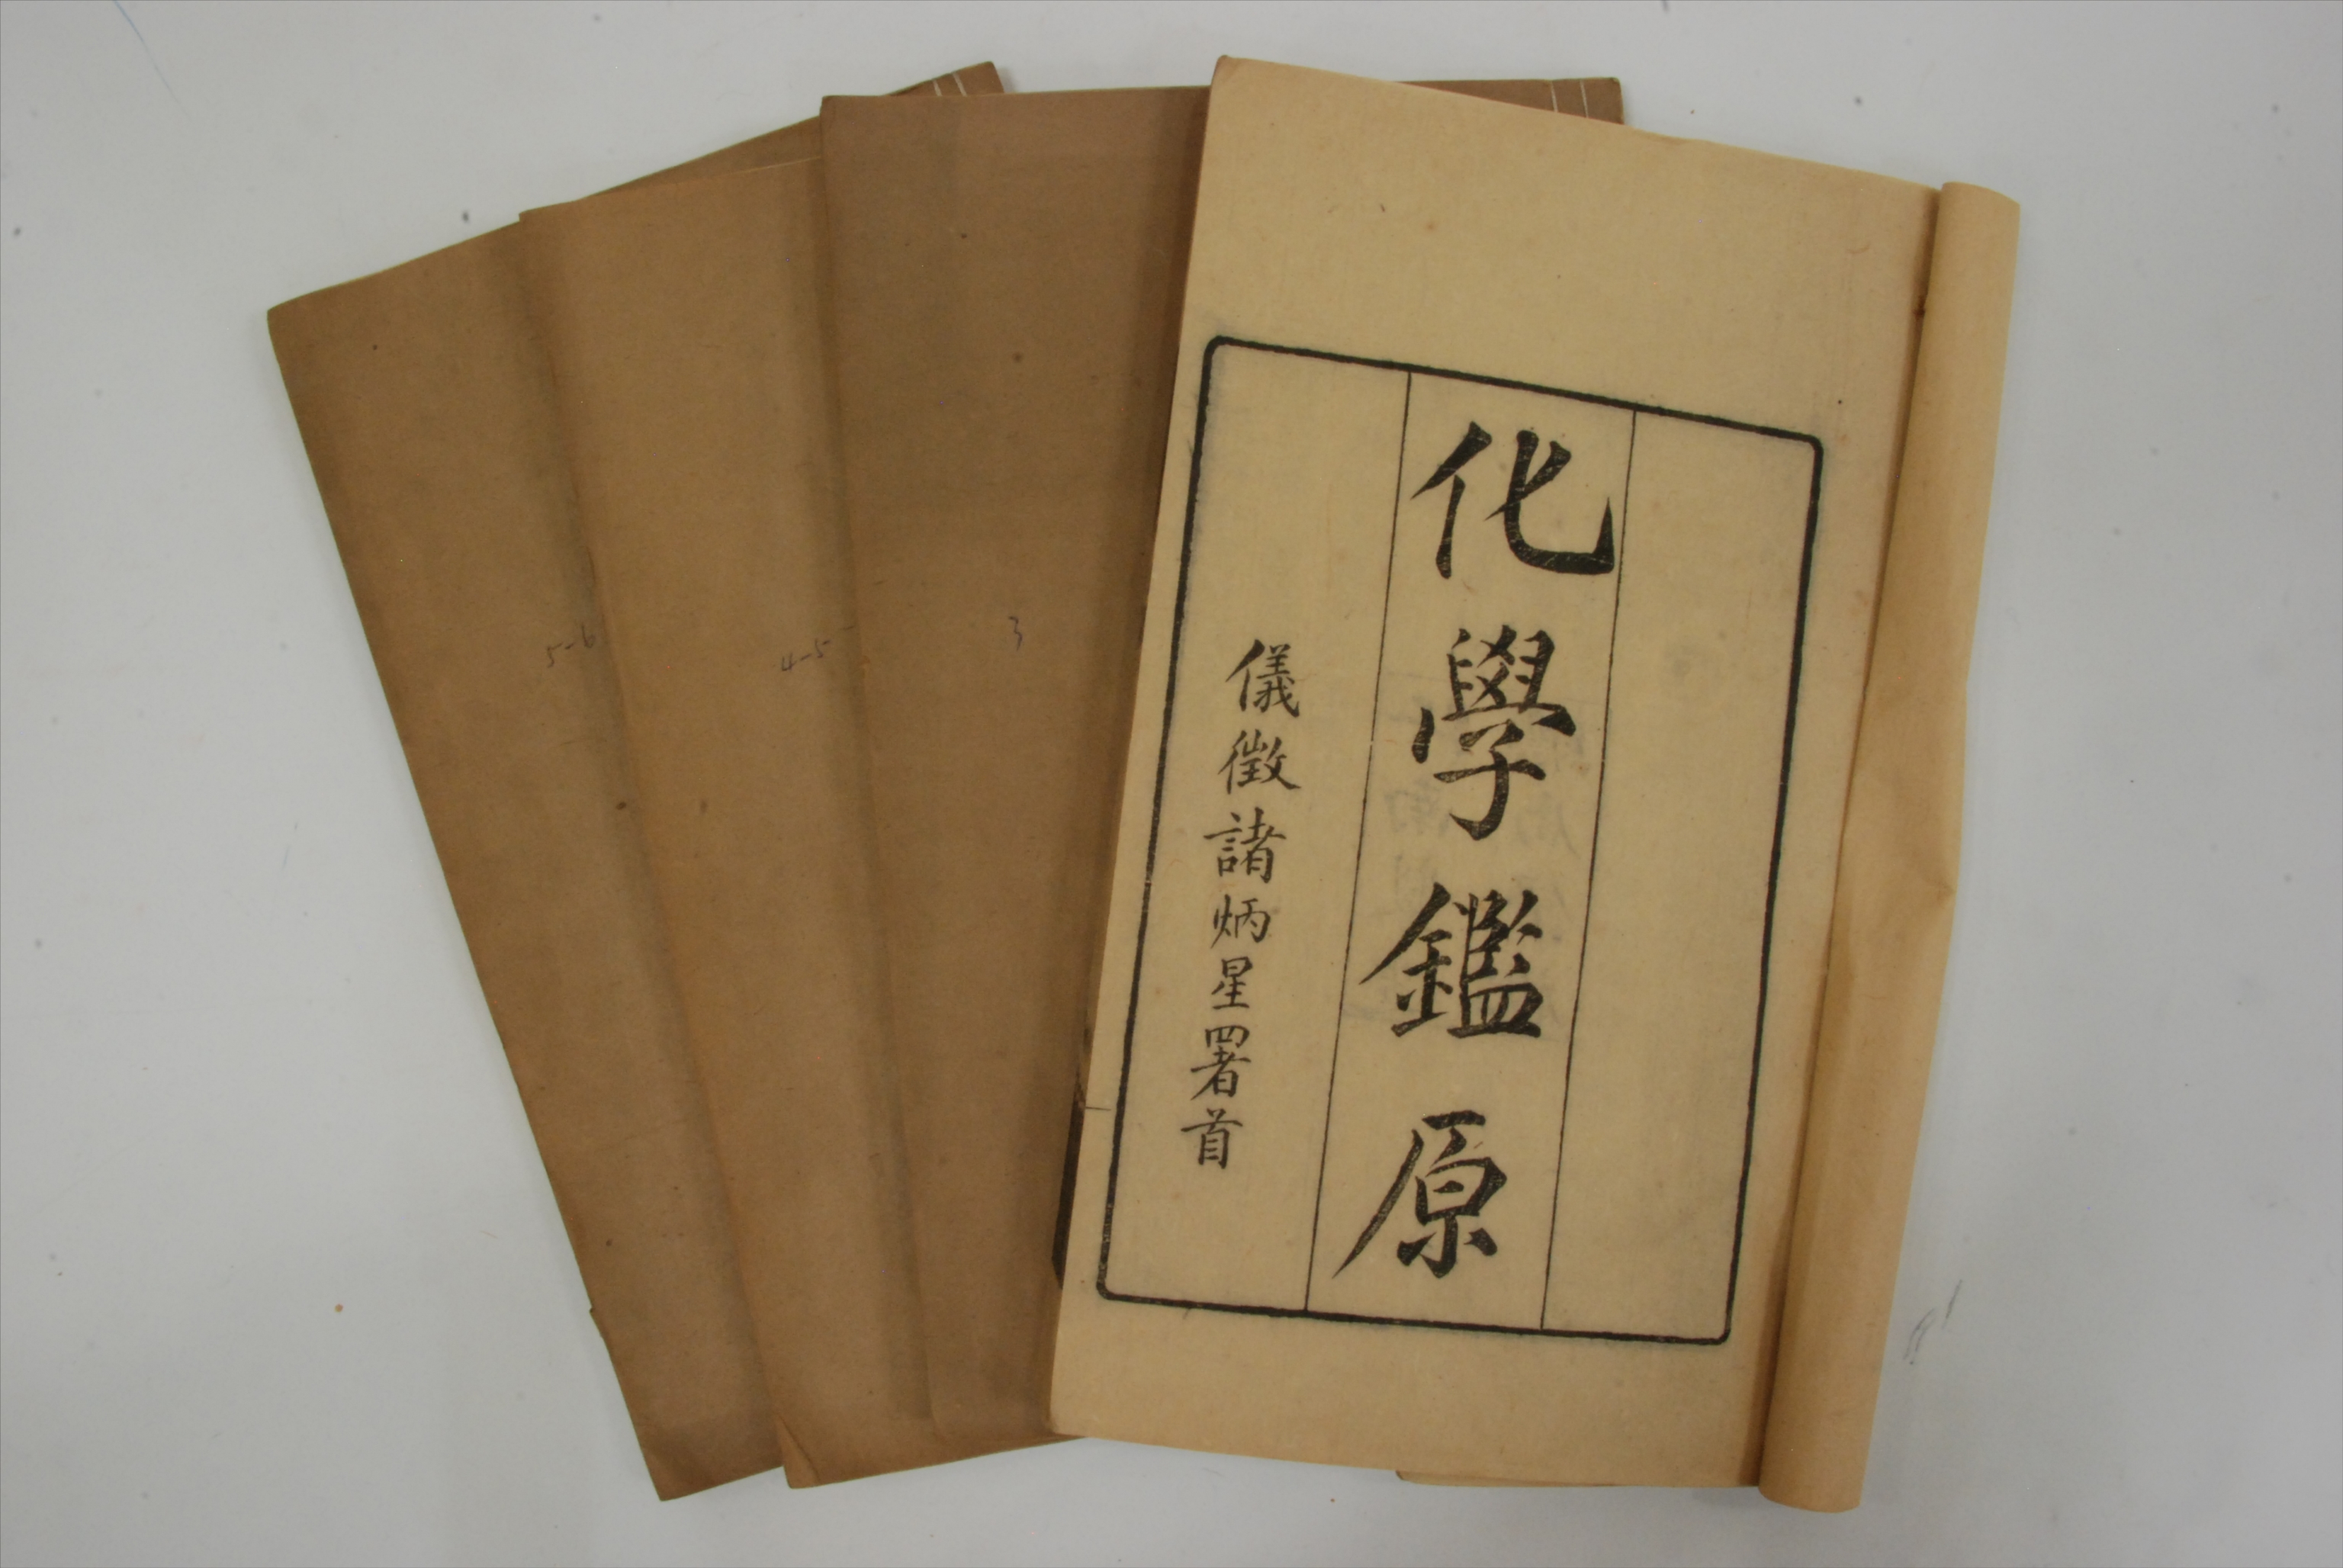 化學鑑原
儀徵諸炳星署首
3
4-5
5-6